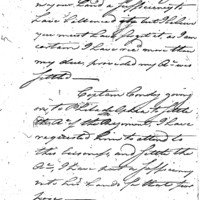 in your hand a sufficiency to
have settled it, but I believe
you must have forgot it, as I am
certain I have rec'd more than
my due, provided my Acct. was
settled —
Captain Condy going
on, to Philadelphia to settle
the Accts. of the Regiment, I have
requested him to attend to
this business, and settle the
Acct, I have put a sufficiency
into his hands for that pur
pose —